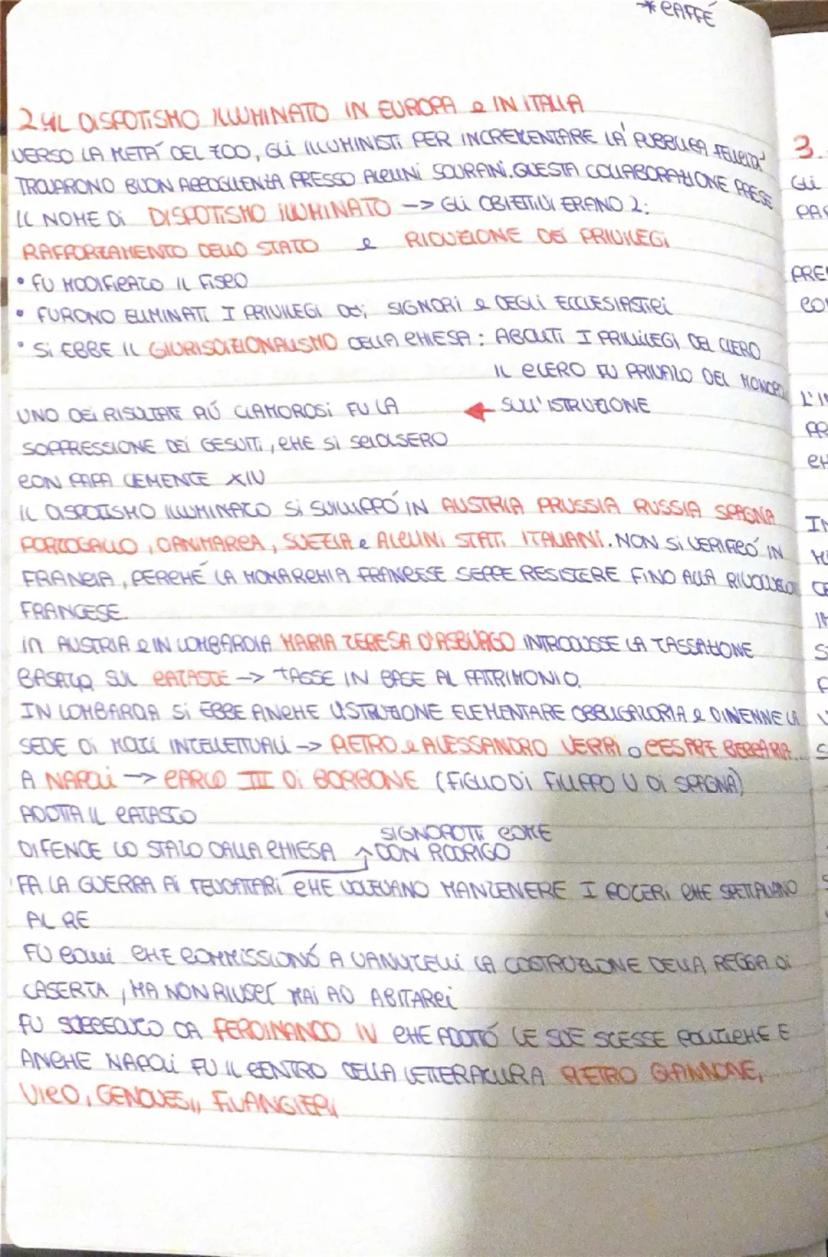 * CAFFÉ
2 IL DISPOTISMO ILLUMINATO IN EUROPA e IN ITALIA
VERSO LA METÀ DEL 700, GLI ILLUMINISTI PER INCREMENTARE LA PUBBLICA FELICITÀ
TROVARONO BUON ACCOGLIENZA PRESSO ALCUNI SOVRANI. QUESTA COLLABORAZIONE PRESE
IL NOME DI DISPOTISMO ILLUMINATO -> GLI OBIETTIVI ERANO 2:
RAFFORZAMENTO DELLO STATO e RIDUZIONE DEI PRIVILEGI
• FU MODIFICATO IL FISCO
• FURONO ELIMINATI I PRIVILEGI DEI SIGNORI e DEGLI ECCLESIASTICI
• SI EBBE IL GIURISDIZIONALISMO DELLA CHIESA: ABOLITI I PRIVILEGI DEL CLERO
IL CLERO FU PRIVATO DEL MONOPO
UNO DEI RISULTATI PIÚ CLAMOROSI FU LA ◄ SULL'ISTRUZIONE
SOPPRESSIONE DEI GESUITI, CHE SI SCIOLSERO
CON PAPA CLEMENTE XIV
IL DISPOTISMO ILLUMINATO SI SVILUPPÓ IN AUSTRIA PRUSSIA RUSSIA SPAGNA
PORTOGALLO, DANIMARCA, SVEZIA e ALCUNI STATI ITALIANI. NON SI VERIFICÓ IN
FRANCIA, PERCHÉ LA MONARCHIA FRANCESE SEPPE RESISTERE FINO ALLA RIVOLUZIO
FRANCESE.
IN AUSTRIA e IN LOMBARDIA MARIA TERESA D'ASBURGO INTRODUSSE LA TASSAZIONE
BASATA SUL CATASTO -> TASSE IN BASE AL PATRIMONIO.
IN LOMBARDIA SI EBBE ANCHE L'ISTRUZIONE ELEMENTARE OBBLIGATORIA e DIVENNE LA
SEDE DI MOLTI INTELLETTUALI -> PIETRO e ALESSANDRO VERRI o CESARE BECCARIA
A NAPOLI -> CARLO III DI BORBONE (FIGLIO DI FILIPPO V DI SPAGNA)
ADOTTA IL CATASTO
SIGNOROTTI COME
DIFENCE LO STATO DALLA CHIESA DON RODRIGO
FA LA GUERRA AI FEUDATARI CHE VOLEVANO MANTENERE I POTERI CHE SPETTAVANO
AL RE
FU COLUI CHE COMMISSIONÓ A VANVITELLI LA COSTRUZIONE DELLA REGGIA DI
CASERTA, MA NON RIUSCÍ MAI AD ABITARCI
FU SUCCEDUTO DA FERDINANDO IV CHE ADOTTÓ LE SUE STESSE POLITICHE E
ANCHE NAPOLI FU IL CENTRO DELLA LETTERATURA PIETRO GIANNONE,
VICO, GENOVESI, FILANGIERI
3.